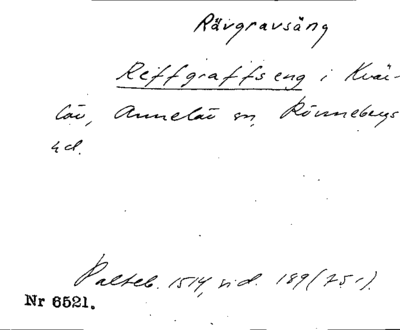 Rävgravsäng
Reiffgraffs eng i Kvär-
löv, Annelöv sn, Rönnebergs
hd.
Palteb. 1514, sid. 189 (75 r).
Nr 6521.